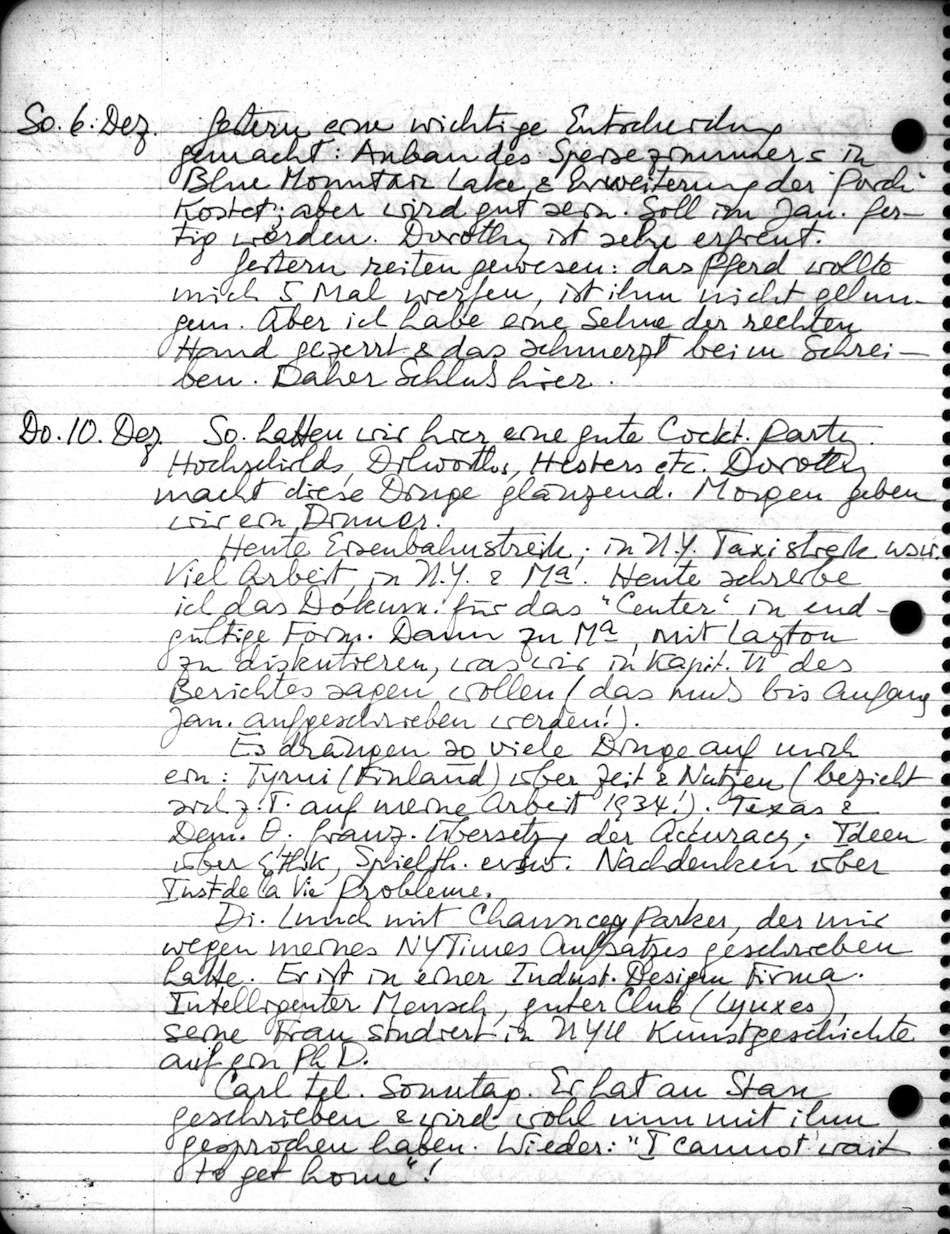 So. 6. Dez. Gestern eine wichtige Entscheidung
gemacht: Anbau des Speisezimmers in
Blue Mountain Lake, & Erweiterung der "Porch"
Kostet; aber wird gut sein. Soll im Jan. fer-
tig werden. Dorothy ist sehr erfreut.
Gestern reiten gewesen: das Pferd wollte
mich 5 Mal werfen, ist ihm nicht gelun-
gen. Aber ich habe eine Sehne der rechten
Hand gezerrt & das schmerzt beim Schrei-
ben. Daher Schluß hier.
Do. 10. Dez. So. hatten wir hier eine gute Cockt. Party.
Hochschilds, Dilworths, Hesters etc. Dorothy
macht diese Dinge glänzend. Morgen geben
wir ein Dinner.
Heute Eisenbahnstreik; in N.Y. Taxistreik usw.
Viel Arbeit in N.Y. & Ma. Heute schreibe
ich das Dokum. für das "Center" in end-
gültige Form. Dann zu Ma, mit Layton
zu diskutieren, was wir in Kapit. VI des
Berichtes sagen wollen (das muß bis Anfang
Jan. aufgeschrieben werden!).
Es drängen so viele Dinge auf mich
ein: Tyrni (Finland) über Zeit & Nutzen (bezieht
sich z.T. auf meine Arbeit 1934!). Texas &
Dem. Θ. Franz. Übersetzg der Accuracy. Ideen
über Ethik, Spielth. Nachdenken über
Inst de la Vie Probleme.
Di. Lunch mit Chauncey Parker, der mir
wegen meines NYTimes Aufsatzes geschrieben
hatte. Er ist in einer Indust. Design Firma.
Intelligenter Mensch, guter Club (Lynxes),
seine Frau studiert in NYU Kunstgeschichte
auf ein Ph D.
Carl tel. Sonntag. Er hat an Stan
geschrieben & wird wohl nun mit ihm
gesprochen haben. Wieder: "I cannot wait
to get home"!